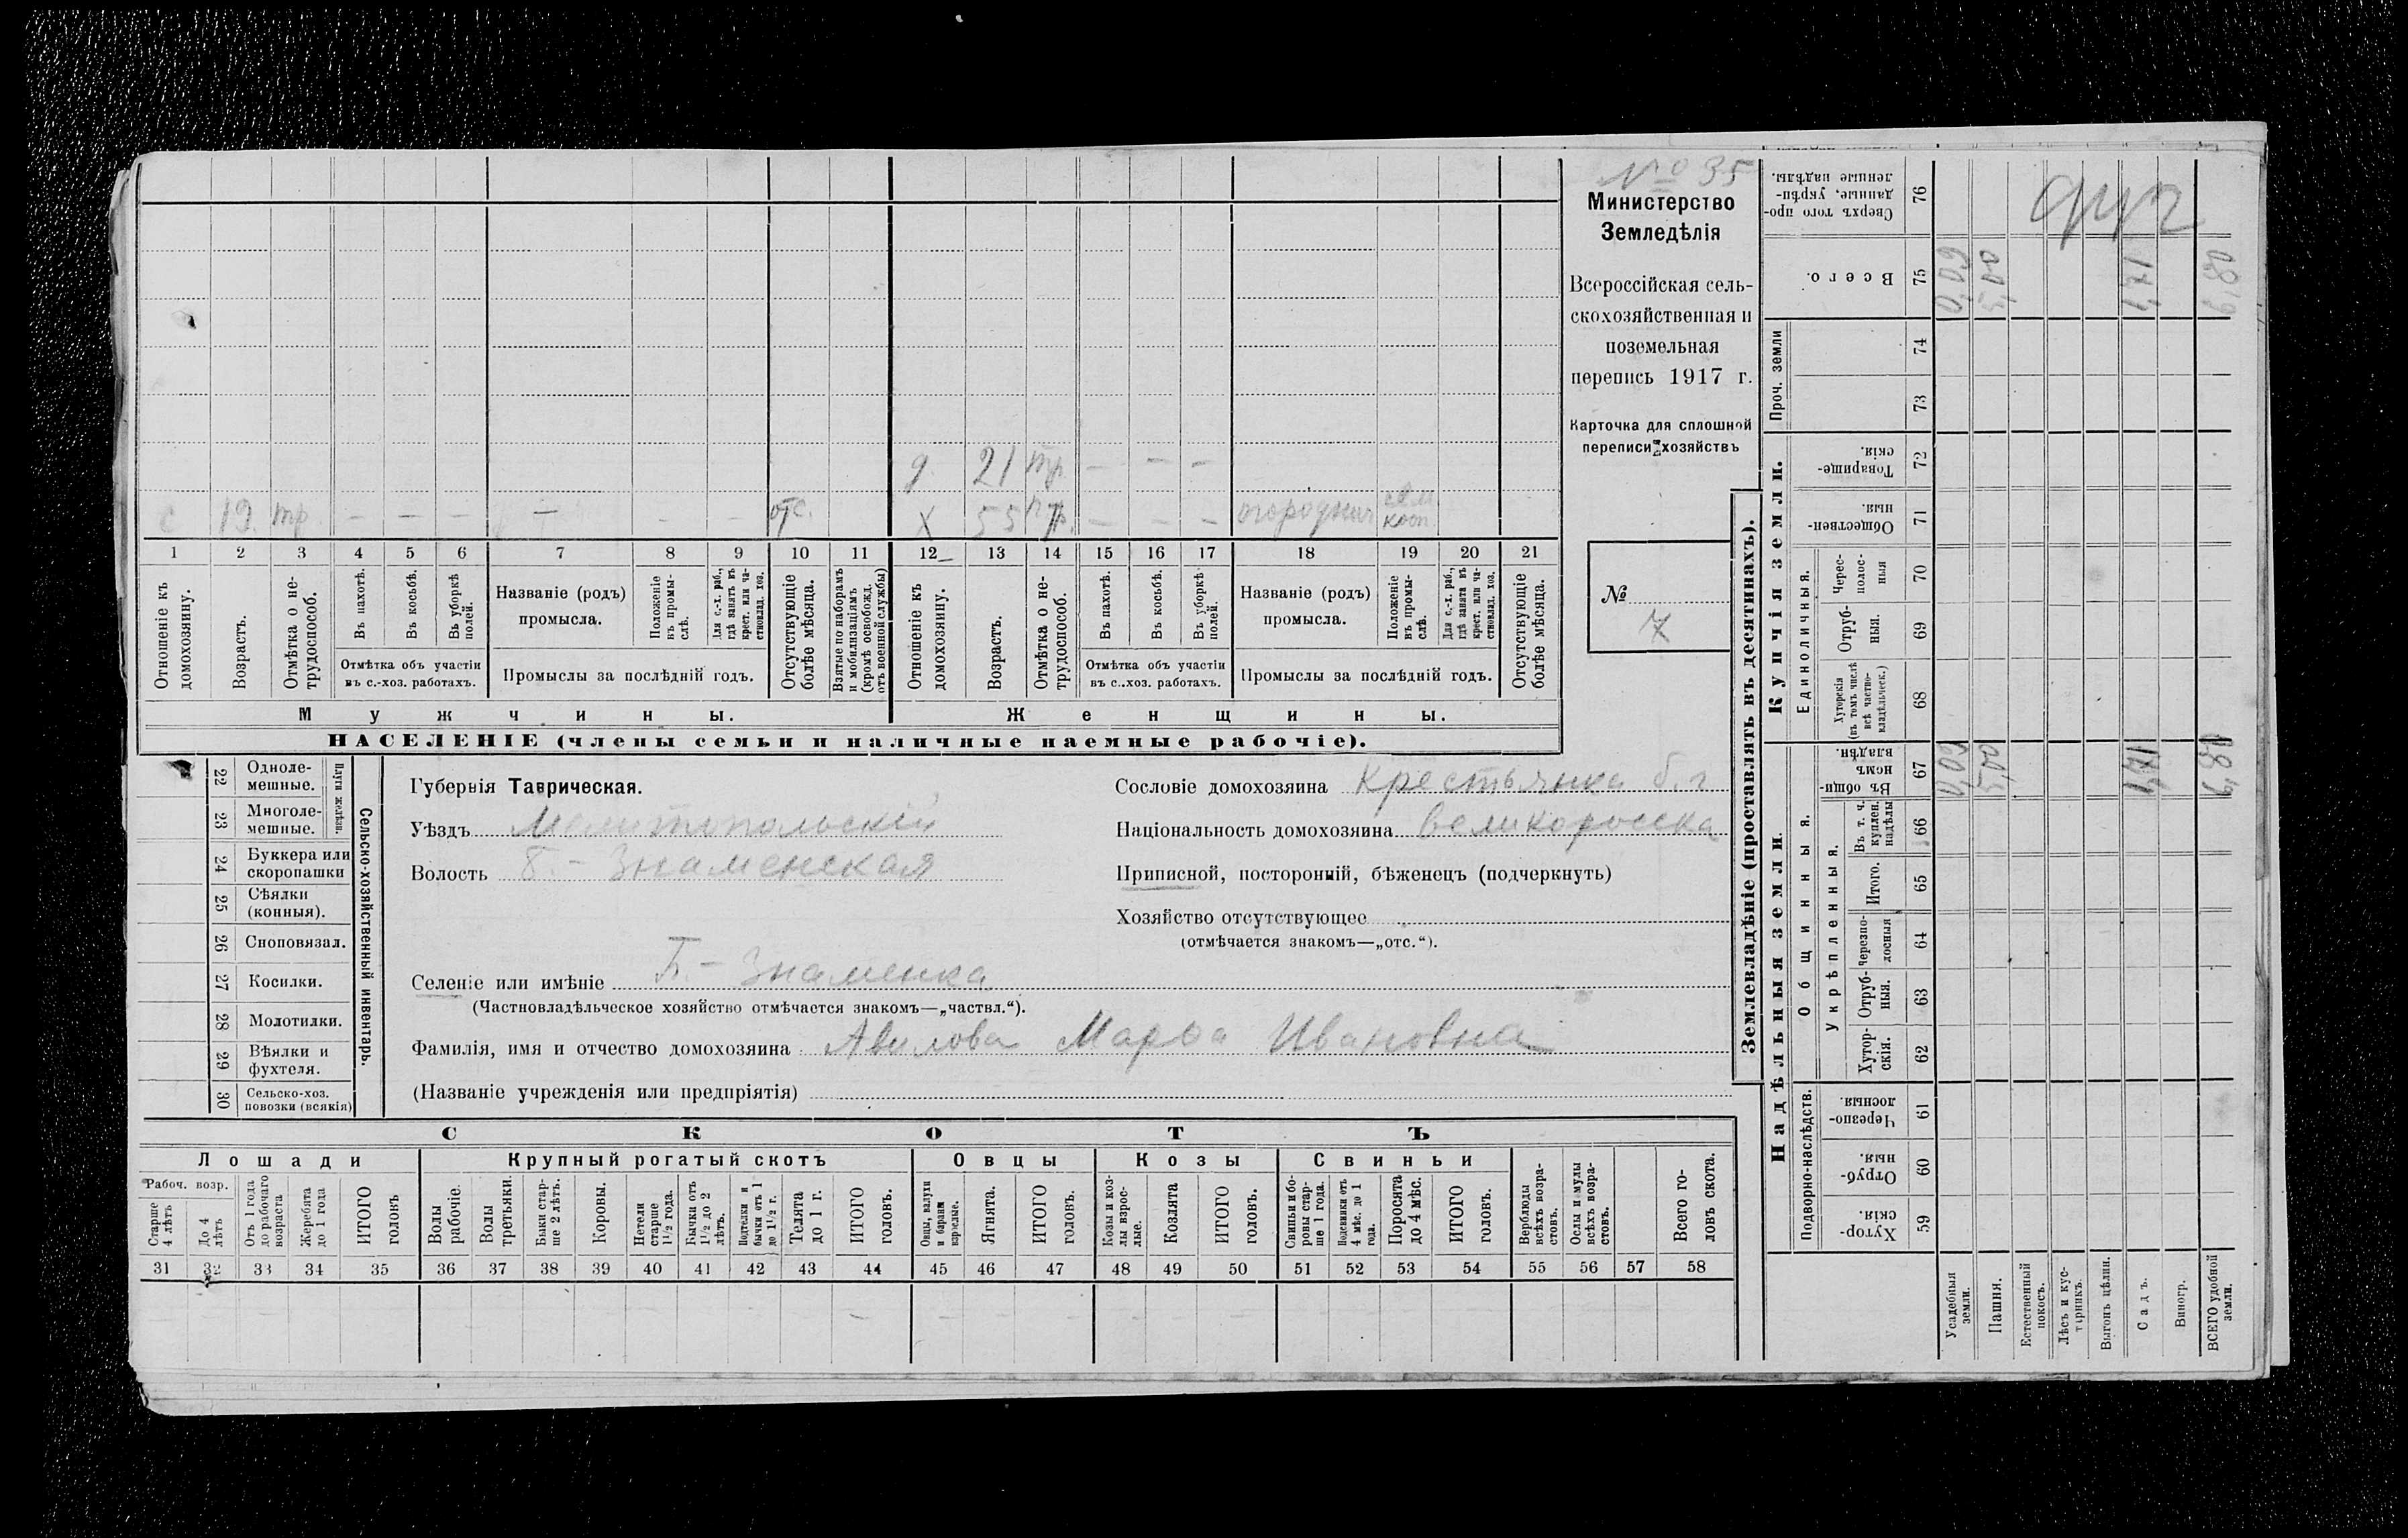 № 35
Министерство
Земледѣлія
Всероссійская сель-
скохозяйственная и
поземельная
перепись 1917 г.
Карточка для сплошной
переписи хозяйствъ
№
7
д. 21 тр. — — —
с 19. тр. — — — — — — отс. х 55 — — — огороднич.
1 2 3 4 5 6 7 8 9 10 11 12 13 14 15 16 17 18 19 20 21
Отношеніе къ домохозяину.
Возрастъ.
Отмѣтка о не-трудоспособ.
Въ пахотѣ.
Въ косьбѣ.
Въ уборкѣ полей.
Отмѣтка объ участіи
въ с.-хоз. работахъ.
Названіе (родъ)
промысла.
Положеніе въ промы-слѣ.
Для с.-х. раб., гдѣ занятъ въ крест. или ча-стновлад. хоз.
Промыслы за послѣдній годъ.
Отсутствующіе болѣе мѣсяца.
Взятые по наборамъ и мобилизаціямъ (кромѣ освобожд. отъ военной службы)
Отношеніе къ домохозяину.
Возрастъ.
Отмѣтка о не-трудоспособ.
Въ пахотѣ.
Въ косьбѣ.
Въ уборкѣ полей.
Отмѣтка объ участіи
въ с.-хоз. работахъ.
Названіе (родъ)
промысла.
Положеніе въ промы-слѣ.
Для с.-х. раб., гдѣ занята въ крест. или ча-стновлад. хоз.
Промыслы за послѣдній годъ.
Отсутствующіе болѣе мѣсяца.
Мужчины.
Женщины.
НАСЕЛЕНІЕ (члены семьи и наличные наемные рабочіе).
Сельско-хозяйственный инвентарь.
Плуги желѣзн.
22 Одноле-мешные.
23 Многоле-мешные.
24 Буккера или скоропашки
25 Сѣялки (конныя).
26 Сноповязал.
27 Косилки.
28 Молотилки.
29 Вѣялки и фухтеля.
30 Сельско-хоз. повозки (всякія)
Губернія Таврическая.
Уѣздъ Мелитопольскій
Волость Б.-Знаменская
Селеніе или имѣніе Б.-Знаменка
(Частновладѣльческое хозяйство отмѣчается знакомъ—„частвл.“).
Фамилія, имя и отчество домохозяина Авилова Марья Ивановна
(Названіе учрежденія или предпріятія)
Сословіе домохозяина Крестьянка б. г
Національность домохозяина великоросска
Приписной, посторонній, бѣженецъ (подчеркнуть)
Хозяйство отсутствующее
(отмѣчается знакомъ—„отс.“).
СКОТЪ
Лошади
Крупный рогатый скотъ
Овцы
Козы
Свиньи
Рабоч. возр.
Старше 4 лѣтъ
До 4 лѣтъ
Отъ 1 года до рабочаго возраста
Жеребята до 1 года
ИТОГО головъ
Волы рабочіе.
Волы третьяки.
Быки стар-ше 2 лѣтъ.
Коровы.
Нетели старше 1½ года.
Бычки отъ 1½ до 2 лѣтъ.
Нотелки и бычки отъ 1 до 1½ г.
Телята до 1 г.
ИТОГО головъ.
Овцы, валухи и бараны взрослые.
Ягнята.
ИТОГО головъ.
Козы и коз-лы взрос-лые.
Козлята
ИТОГО головъ.
Свиньи и бо-ровы стар-ше 1 года.
Подсвинки отъ 4 мѣс. до 1 года.
Поросята до 4 мѣс.
ИТОГО головъ.
Верблюды всѣхъ возра-стовъ.
Ослы и мулы всѣхъ возра-стовъ.
Всего го-ловъ скота.
31 32 33 34 35 36 37 38 39 40 41 42 43 44 45 46 47 48 49 50 51 52 53 54 55 56 57 58
Землевладѣніе (проставлять въ десятинахъ).
Купчія земли.
Надѣльныя земли.
Сверхъ того про-данные, укрѣп-ленные надѣлы. 76
Всего. 75 0,09 5,00 1,71 6,80
Проч. земли
74
73
Товарище-скія. 72
Обществен-ныя. 71
Единоличныя.
Черес-полос-ныя 70
Отруб-ныя. 69
Хуторскія (въ томъ числѣ всѣ частно-владѣльческ.) 68
Общинныя.
Въ общи-номъ владѣн. 67 0,09 5,00 1,71 6,80
Укрѣпленныя.
Въ т. ч. куплен. надѣлы 66
Итого. 65
Черезпо-лосныя 64
Отруб-ныя. 63
Хутор-скія. 62
Подворно-наслѣдств.
Черезпо-лосныя. 61
Отруб-ныя. 60
Хутор-скія. 59
Усадебныя земли.
Пашня.
Естественный покосъ.
Лѣсъ и кус-тарникъ.
Выгонъ цѣлин.
Садъ.
Виногр.
ВСЕГО удобной земли.